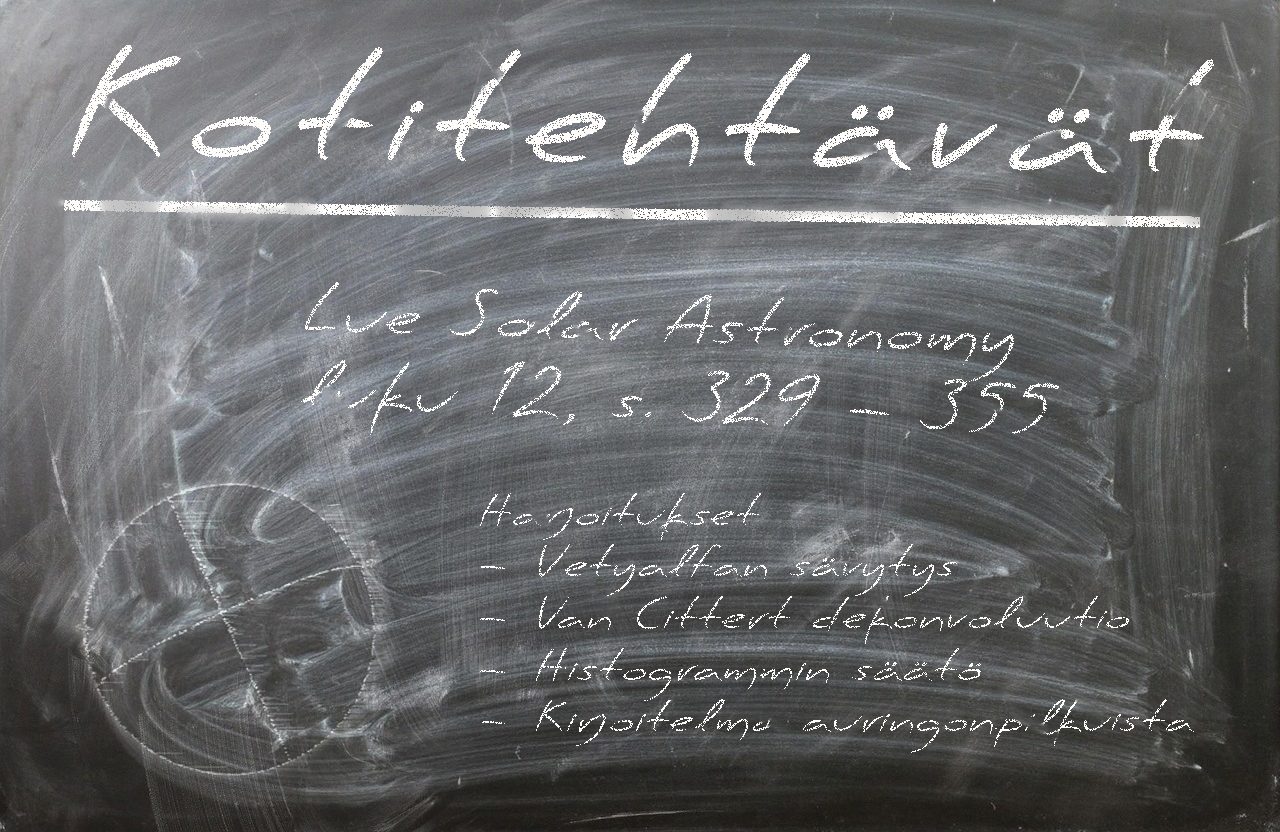 Kotitehtävät
Lue Solar Astronomy
luku 12, s. 329 – 355
Harjoitukset
– Vetyalfan sävytys
– Van Cittert dekonvoluutio
– Histogrammin säätö
– Kirjoitelma auringonpilkuista